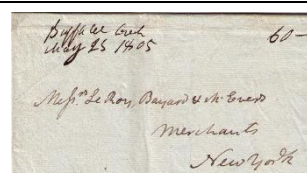 Buffaloe Creek 60-
May 25 1805
Messrs LeRoy, Bayard & McEvers
Merchants
New York